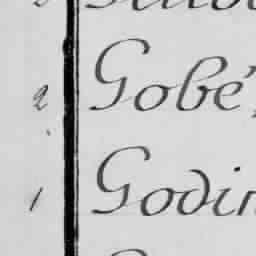 2 Gobé,
1 Godin